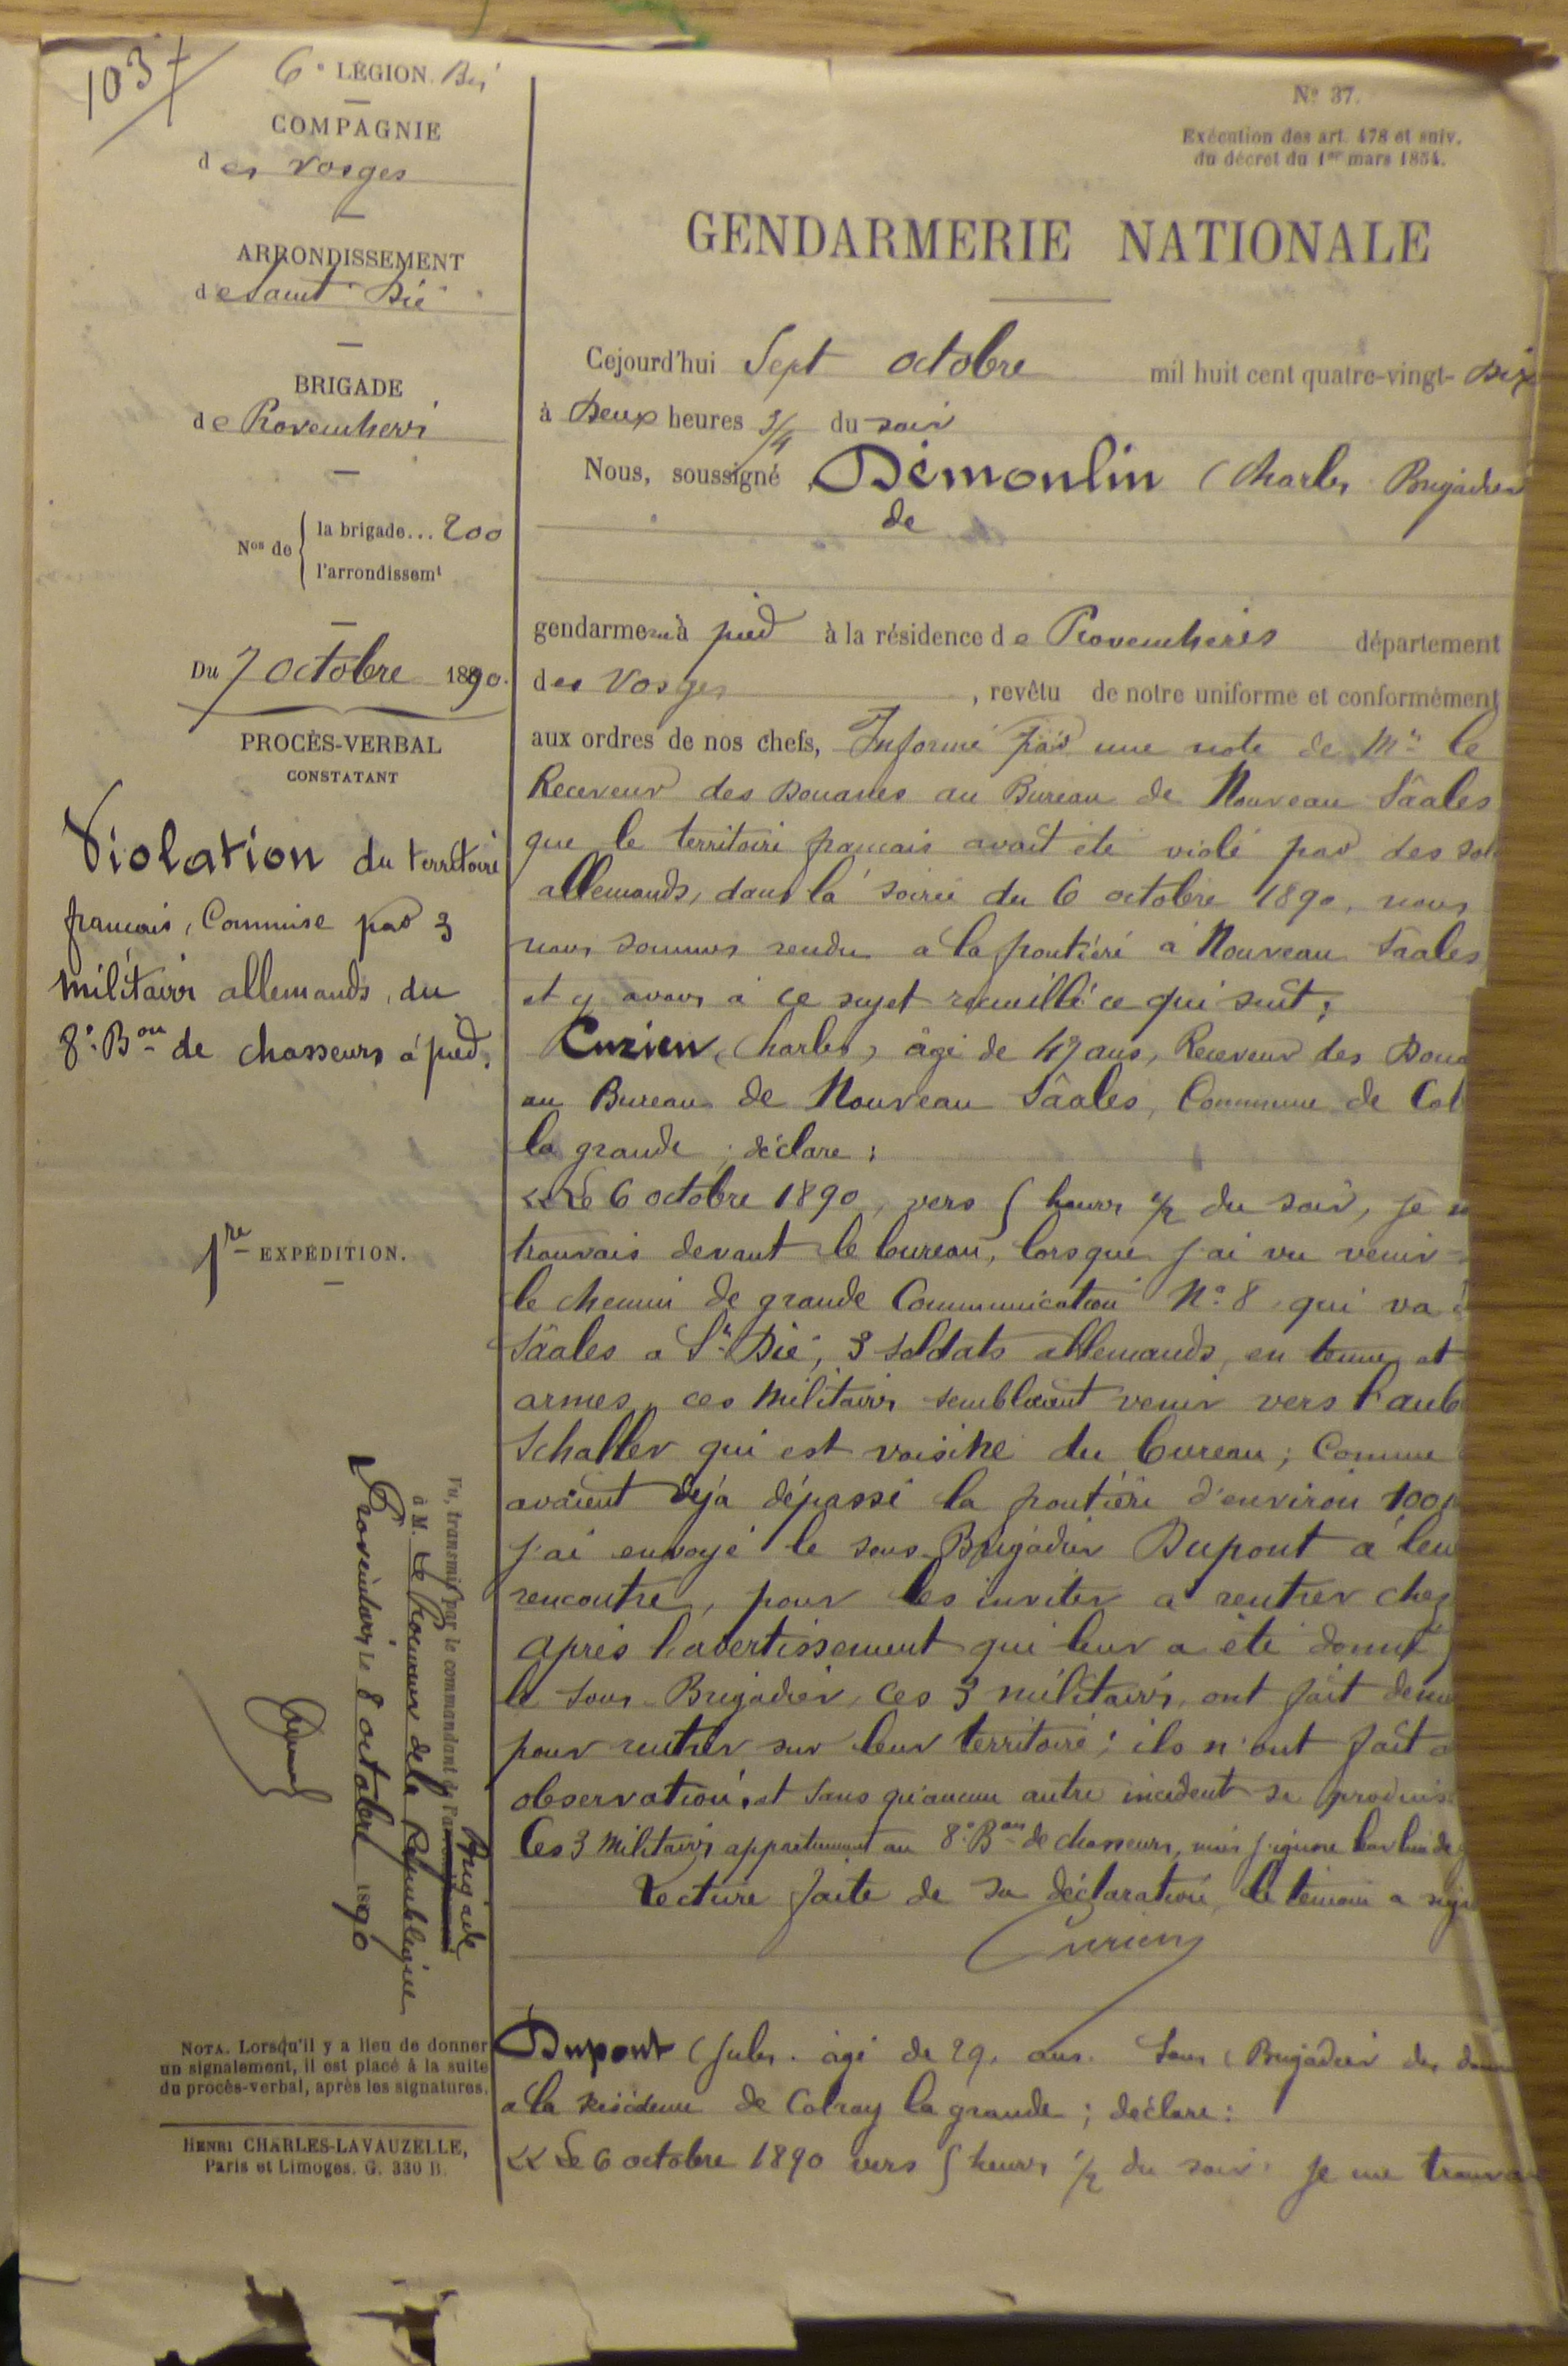 1037
6e LÉGION Bis
COMPAGNIE
des Vosges
ARRONDISSEMENT
de Saint Dié
BRIGADE
de Provenchères
Nos de { la brigade... 200
l'arrondissemt
Du 7 octobre 1890.
PROCÈS-VERBAL
CONSTATANT
Violation du territoire
français, Commise par 3
militaires allemands, du
8e Bon de chasseurs à pied.
1re EXPÉDITION.
Vu, transmis par le commandant de l'arrondissement Brigade
à M. Le Procureur de la République
Provenchères le 8 octobre 1890
NOTA. Lorsqu'il y a lieu de donner
un signalement, il est placé à la suite
du procès-verbal, après les signatures.
HENRI CHARLES-LAVAUZELLE,
Paris et Limoges. G. 330 B.
No 37.
Exécution des art. 478 et suiv.
du décret du 1er mars 1854.
GENDARMERIE NATIONALE
Cejourd'hui Sept octobre mil huit cent quatre-vingt- Dix
à Deux heures 3/4 du soir
Nous, soussigné, Démoulin (Charles Brigadier
de
gendarmerie à pied à la résidence de Provenchères département
des Vosges, revêtu de notre uniforme et conformément
aux ordres de nos chefs, Informé par une note de Mr le
Receveur des Douanes au Bureau de Nouveau Sâales
que le territoire français avait été violé par des sol
allemands, dans la soirée du 6 octobre 1890, nous
nous sommes rendu à la frontière à Nouveau Saales
et y avons à ce sujet recueilli ce qui suit;
Curien (Charles) âgé de 49 ans, Receveur des Doua
au Bureau de Nouveau Sâales, Commune de Col
la grande; déclare:
«Le 6 octobre 1890, vers 5 heures 1/2 du soir, je m
trouvais devant le bureau, lorsque j'ai vu venir
le chemin de grande Communication No 8 qui va
Sâales a St Dié, 3 soldats allemands, en tenue et
armes, ces militaires semblaient venir vers l'aub
Schaller qui est voisine du bureau; Comme
avaient déjà dépassé la frontière d'environ 100
j'ai envoyé le sous-Brigadier Dupont à leu
rencontre, pour les inviter a rentrer chez
après l'avertissement qui leur a été donné
le sous-Brigadier, ces 3 militaires, ont fait demi
pour rentrer sur leur territoire; ils n'ont fait a
observation, et sans qu'aucun autre incident se produis
Ces 3 militaires appartiennent au 8e Bon de chasseurs, mais j'ignore leur lieu de g
Lecture faite de sa déclaration, le témoin a sign
Curien
Dupont (Jules. âgé de 29. ans. Sous Brigadier des doua
a la résidence de Colroy la grande; déclare:
«Le 6 octobre 1890 vers 5 heures 1/2 du soir. je me trouva